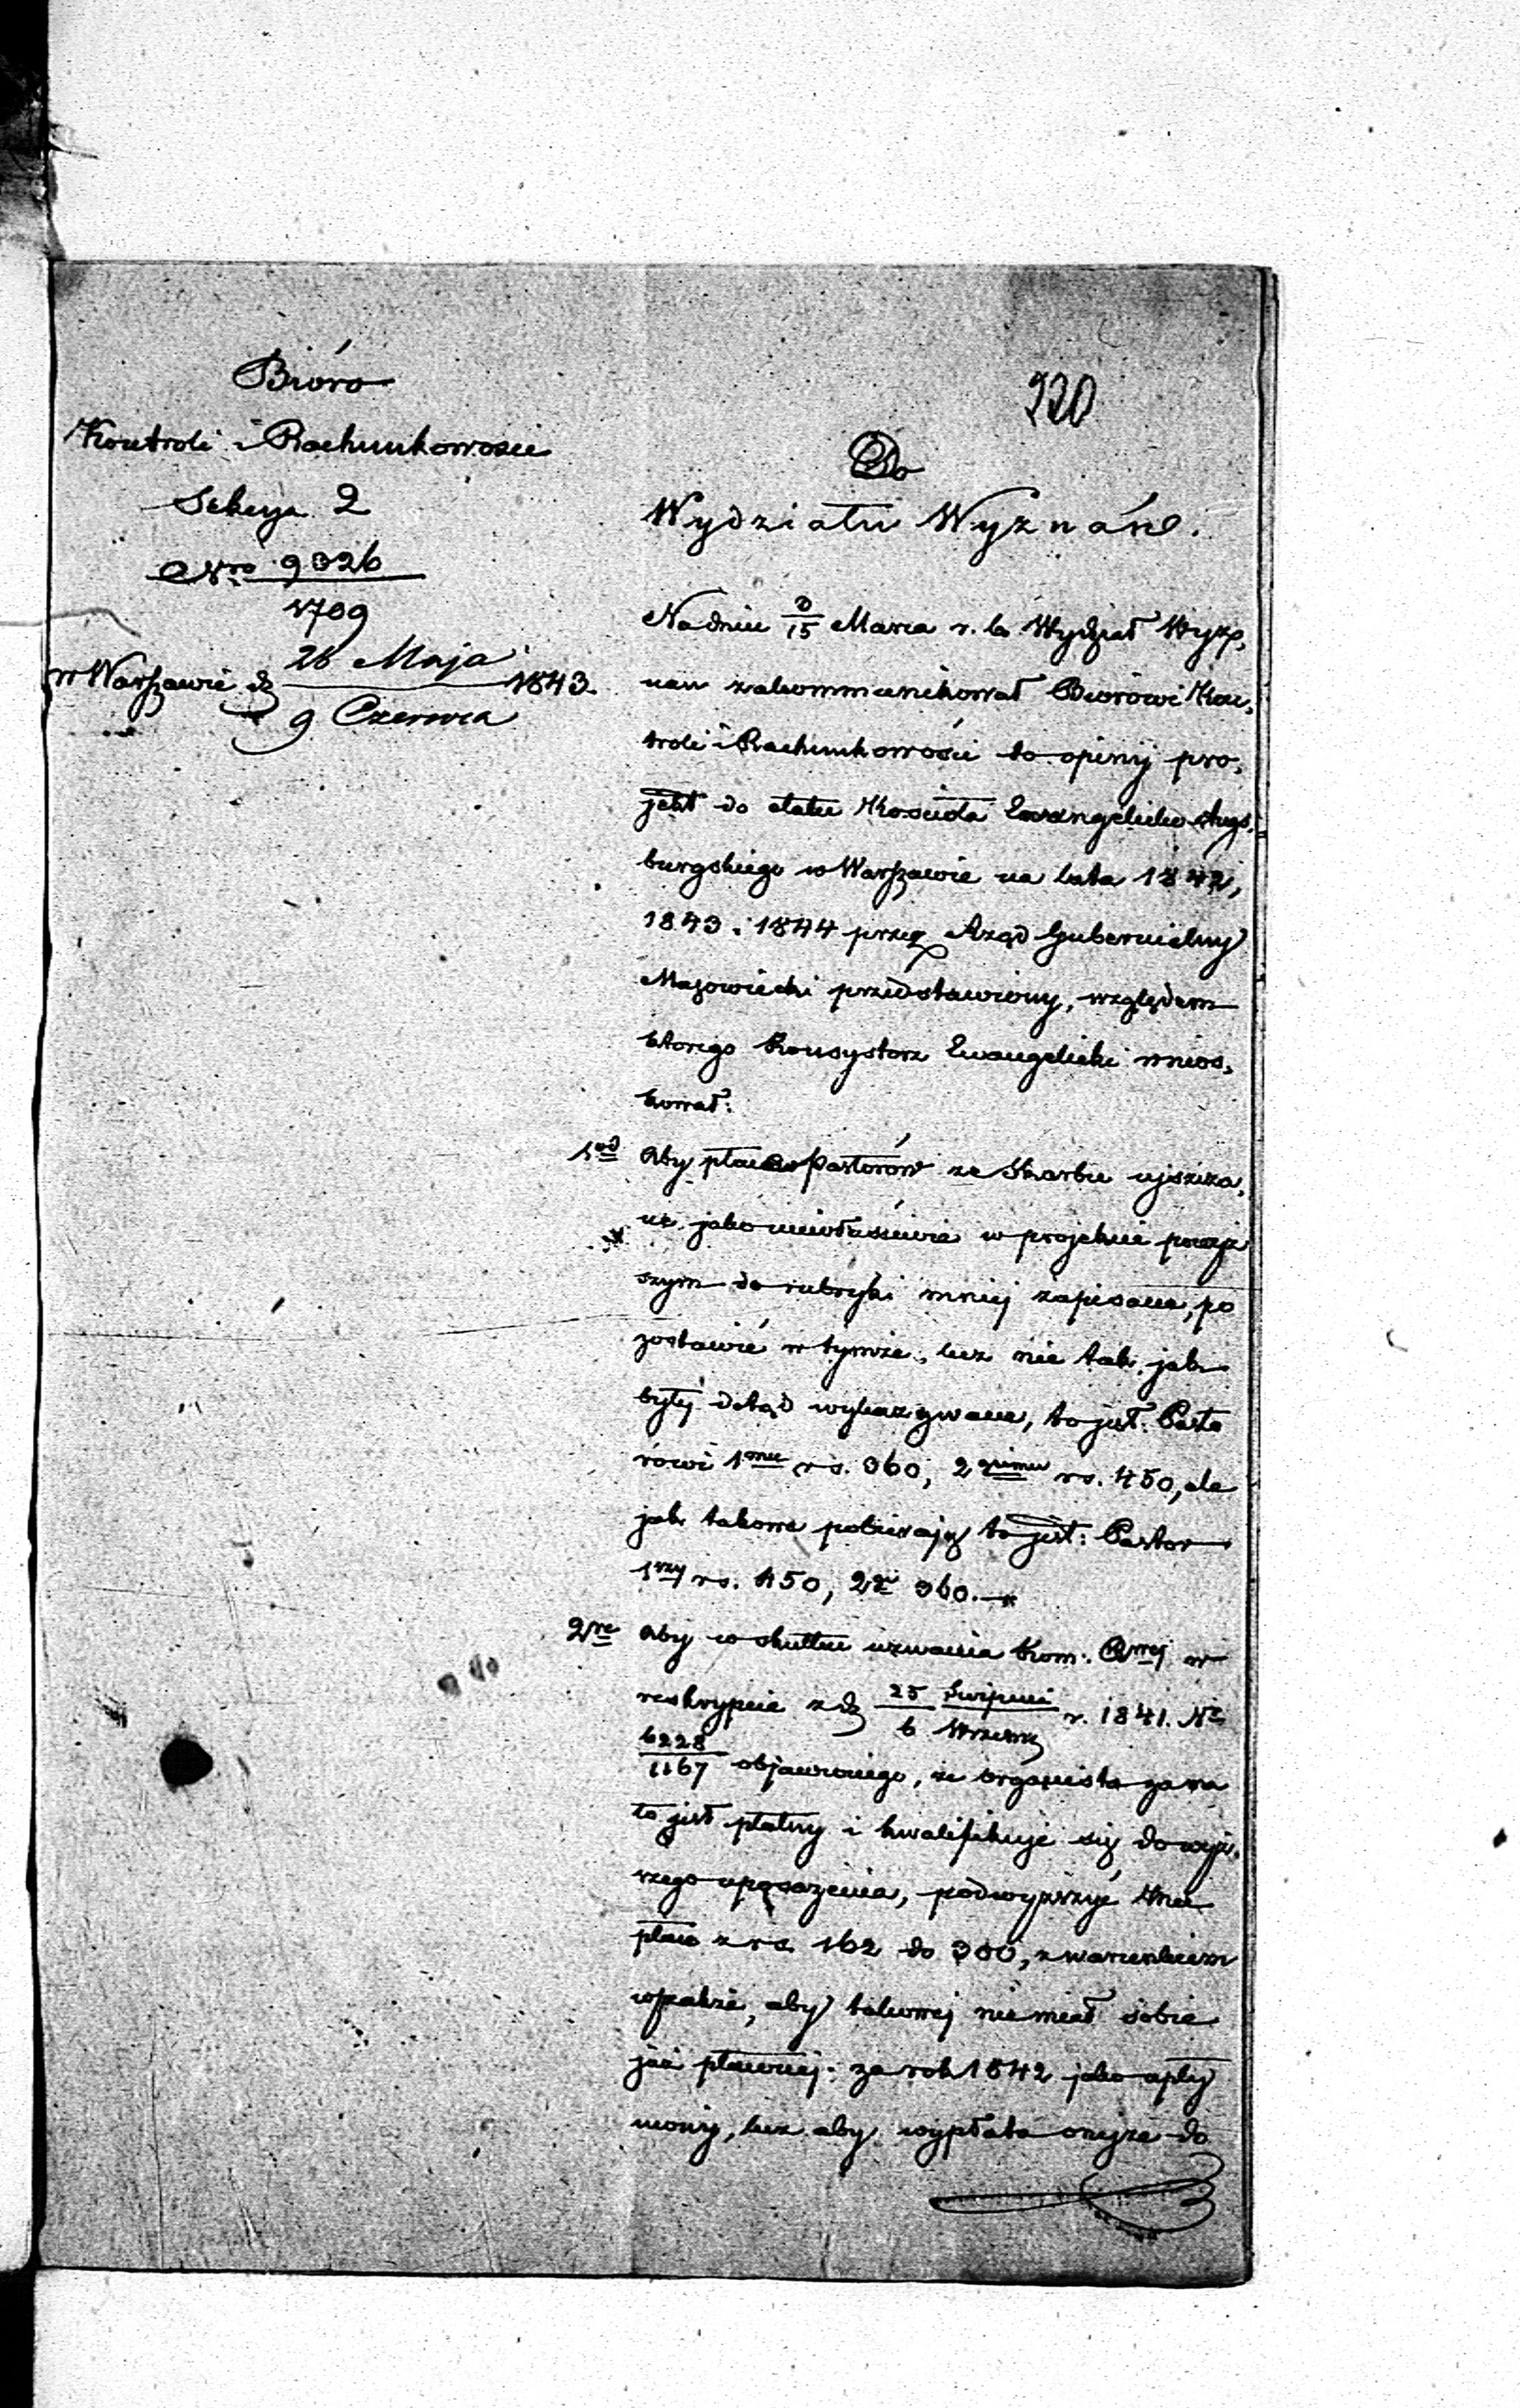 Bióro
Kontroli i Rachunkowości
Sekcya 2
Nro 9326
1709
w Warszawie d. 26 Maja 1843.
9 Czerwca
320
Do
Wydziału Wyznań.
Na dniu 3/15 Marca r. b. Wydział Wyzn,
nań zakommunikował Biorowi Kon,
troli i Rachunkowości do opinij pro,
jekt do etatu Kościoła Ewangelicko Augs,
burgskiego w Warszawie na lata 1842,
1843 i 1844 przez Rząd Gubernialny
Mazowiecki przedstawiony, względem
którego Konsystorz Ewangelicki wnios,
kował:
1od Aby płace Pastorów ze Skarbu uiszcza,
ne jako niewłaściwie w projekcie
szym do rubryki mniej zapisane, po
zostawić w tymże, lecz nie tak, jak
były dotąd wykazywane, to jest: Pasto
rowi 1mu rs. 360, 2gimu rs. 450, ale
jak takowe pobierają to jest: Pastor
1wszy rs. 450, 2gi 360.
2re Aby w skutku uznania Kom: Rwej w
reskrypcie z d. 25 Sierpnia / 6 Wrześn. r. 1841. No
6228/1167 objawionego, że organista za ma
ło jest płatny i kwalifikuje się do wyż,
szego uposażenia, podwyższyć mu
płacę z rs. 162 do 300, z warunkiem
wszakże, aby takowej nie miał sobie
już płatnej za rok 1842 jako upły
niony, lecz aby wypłata onejże do